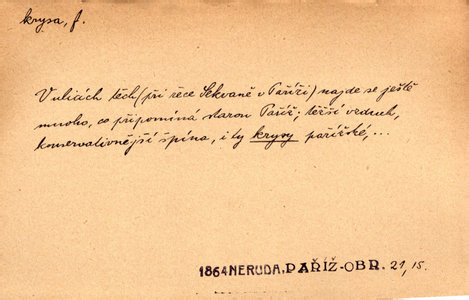 krysa, f.
V ulicích těch (při řece Sekvaně v Paříži) najde se ještě
mnoho, co připomíná starou Paříž; těžší vzduch,
konservativnější špína, i ty krysy pařížské,...
1864 NERUDA, PAŘÍŽ-OBR. 21, 15.